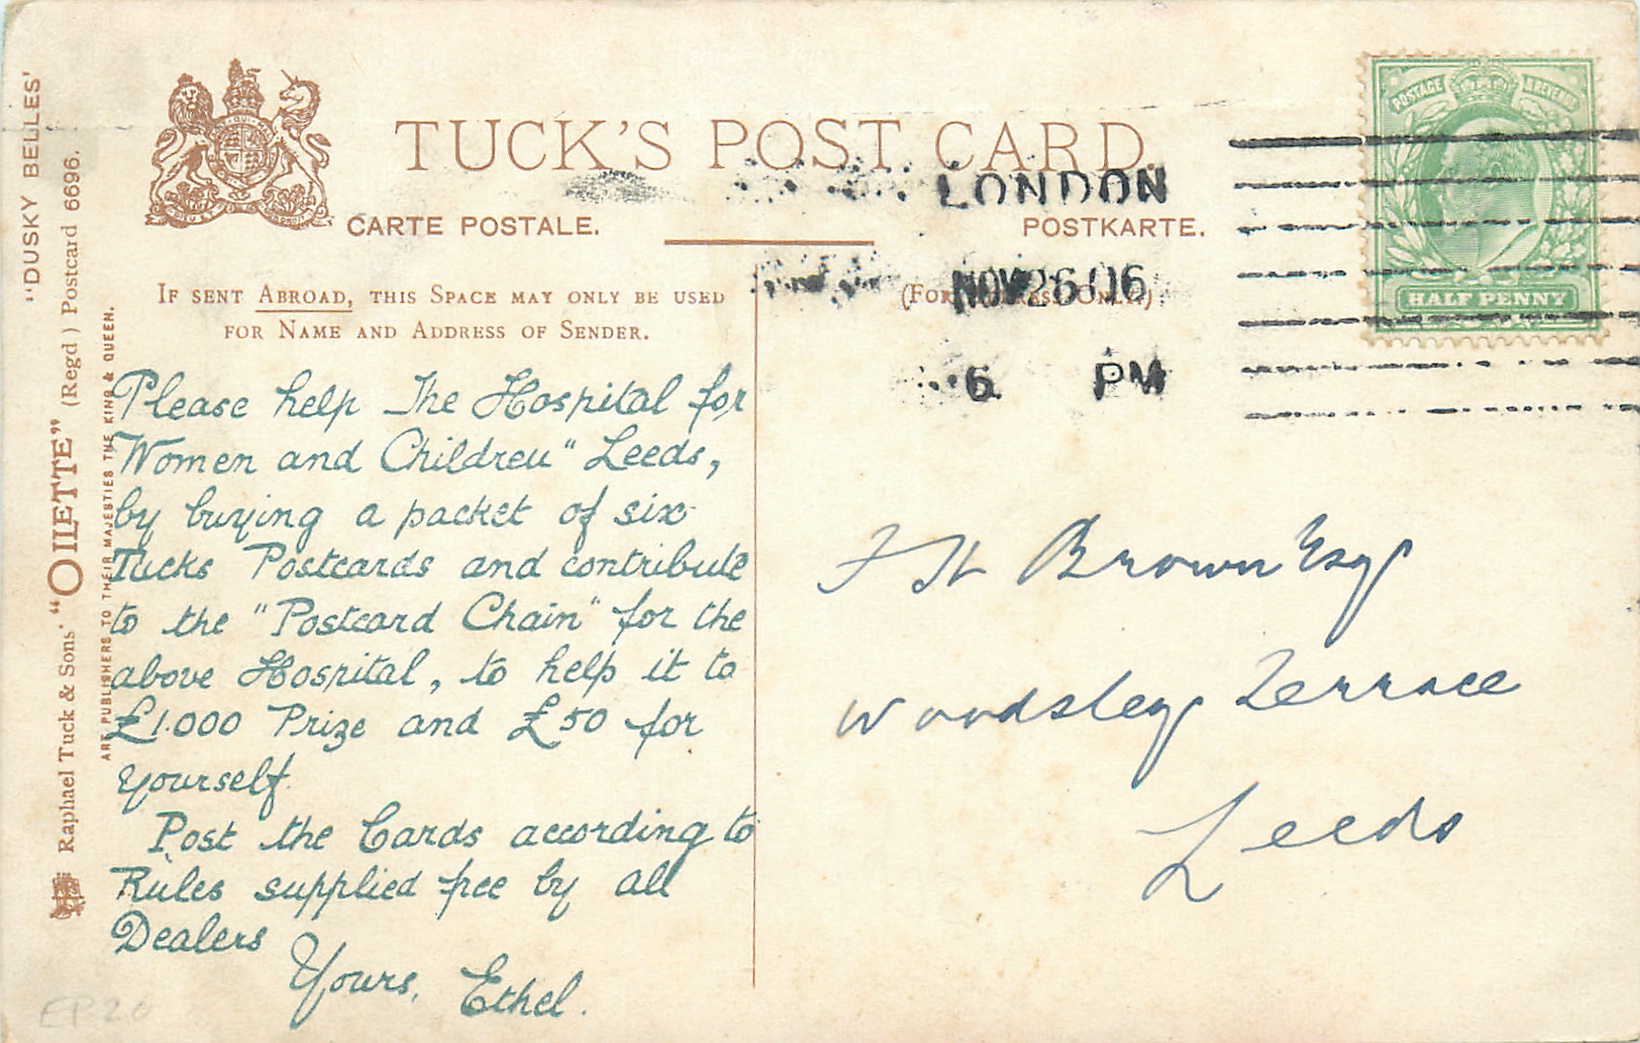 "DUSKY BELLES'
Raphael Tuck & Sons' "OILETTE" (Regd) Postcard 6696.
ART PUBLISHERS TO THEIR MAJESTIES THE KING & QUEEN.
TUCK'S POST CARD.
CARTE POSTALE.
POSTKARTE.
IF SENT ABROAD, THIS SPACE MAY ONLY BE USED
FOR NAME AND ADDRESS OF SENDER.
Please help The Hospital for
"Women and Children" Leeds,
by buying a packet of six
Tucks Postcards and contribute
to the "Postcard Chain" for the
above Hospital, to help it to
£1.000 Prize and £50 for
yourself.
Post the Cards according to
Rules supplied free by all
Dealers
Yours, Ethel.
EP20
LONDON
NOV 26 06
6 PM
POSTAGE & REVENUE
HALF PENNY
Brown Esq
Woodsley Terrace
Leeds